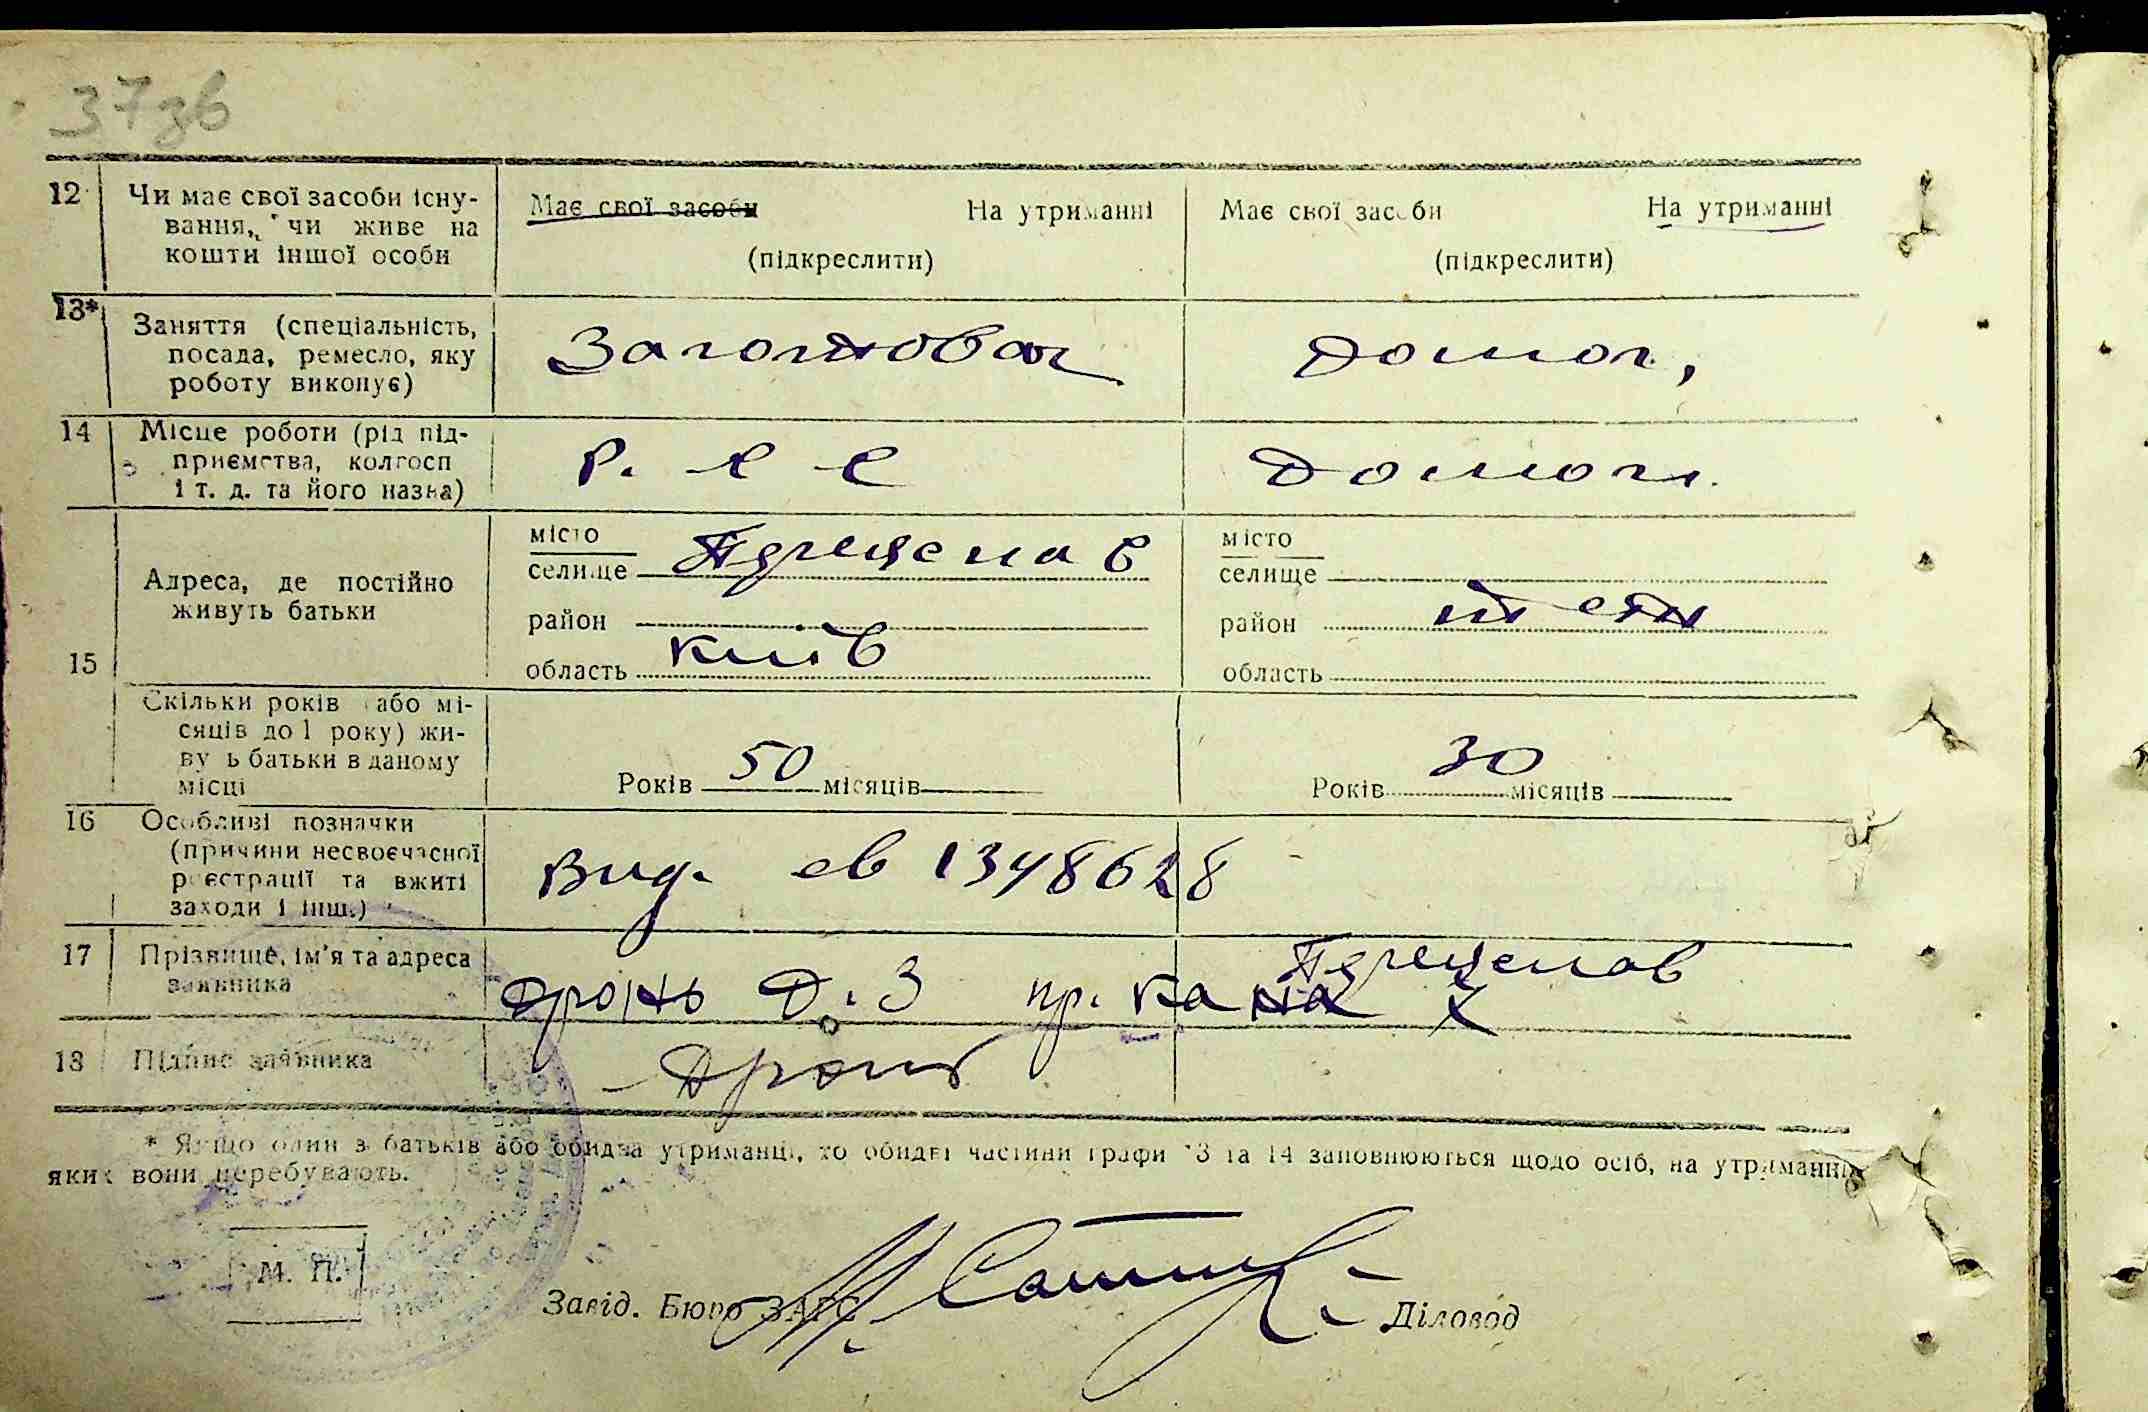 37зв
12 Чи має свої засоби існу- Має свої засоби На утриманні Має свої засоби На утриманні
вання, чи живе на
кошти іншої особи (підкреслити) (підкреслити)
13*
Заняття (спеціальність,
посада, ремесло, яку Заготовач Домог,
роботу виконує)
14 Місце роботи (рід під-
приємства, колгосп Р. с с Домог.
і т. д. та його назва)
місто місто
селище селище
Адреса, де постійно
живуть батьки
район район
15 область Київ область
Скільки років або мі-
сяців до 1 року) жи-
вуть батьки в даному
місці Років 50 місяців Років 30 місяців
16 Особливі позначки
(причини несвоєчасної
реєстрації та вжиті Вид. св 1348628
заходи і інш.)
17 Прізвище, ім'я та адреса
заявника Дронь Д. З пр.
18 Підпис заявника Дронь
* Якщо один з батьків або обидва утриманці, то обидві частини графи 13 та 14 заповнюються щодо осіб, на утриманні
яких вони перебувають.
М. П.
Завід. Бюро ЗАГС Діловод